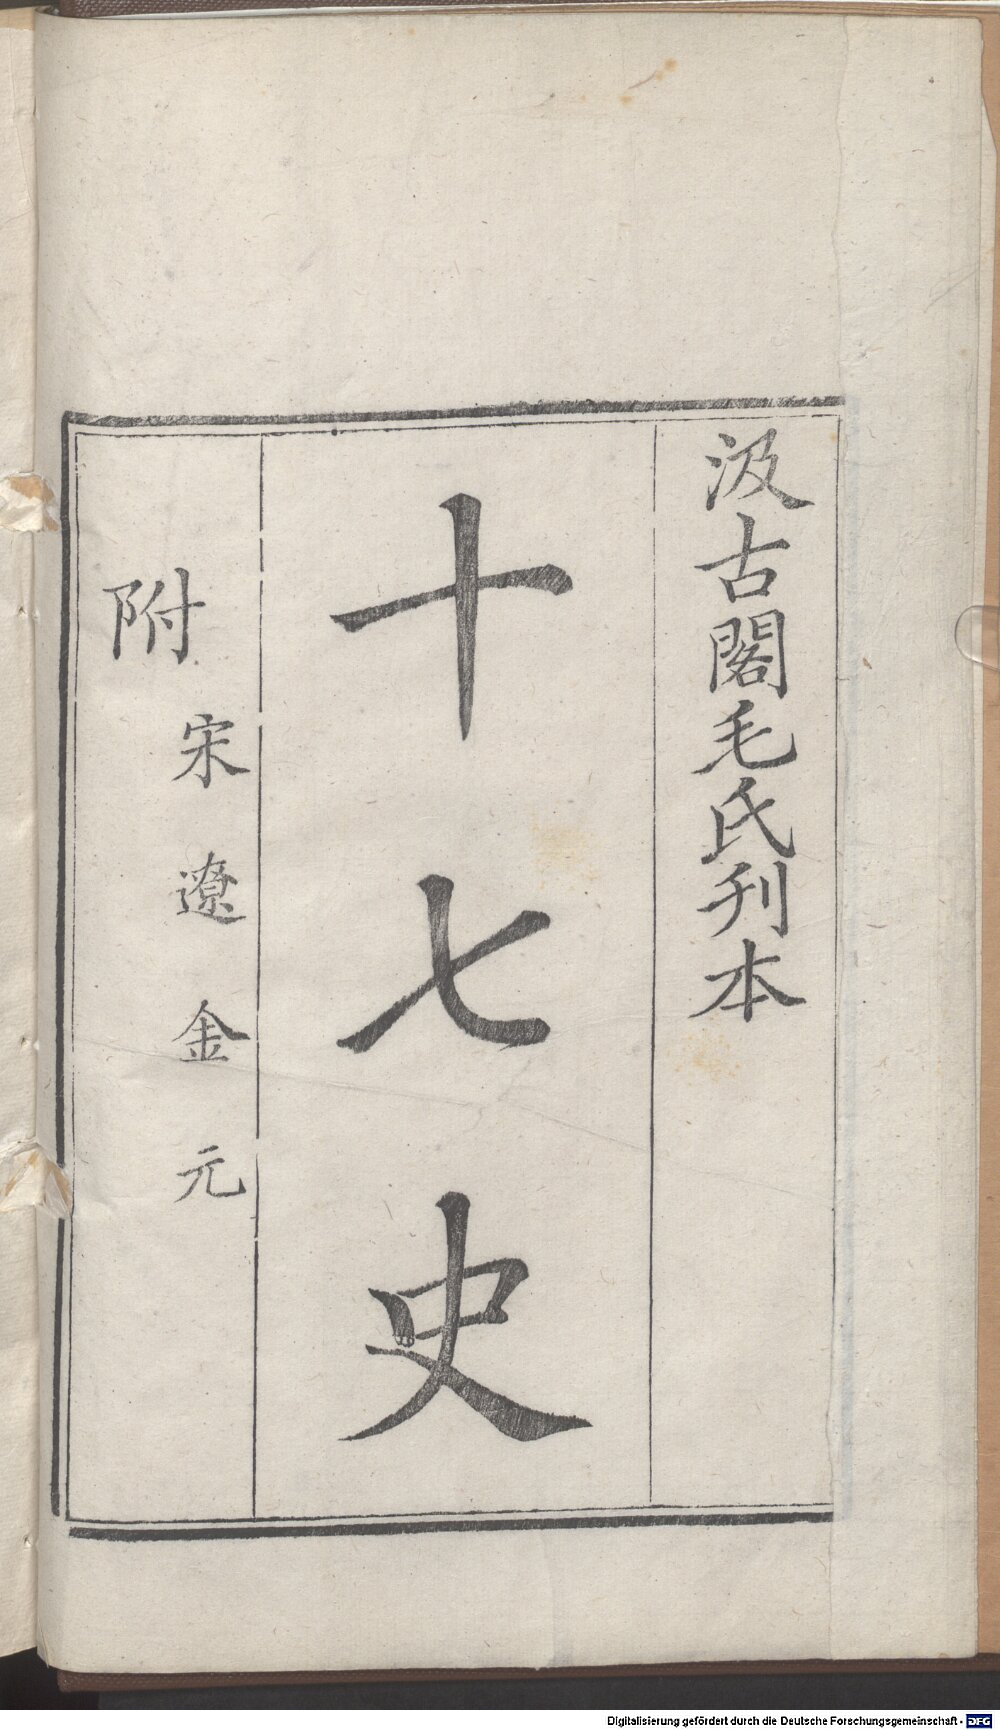 汲古閣毛氏刋本
十七史
附
宋遼金元
Digitalisierung gefördert durch die Deutsche Forschungsgemeinschaft - DFG